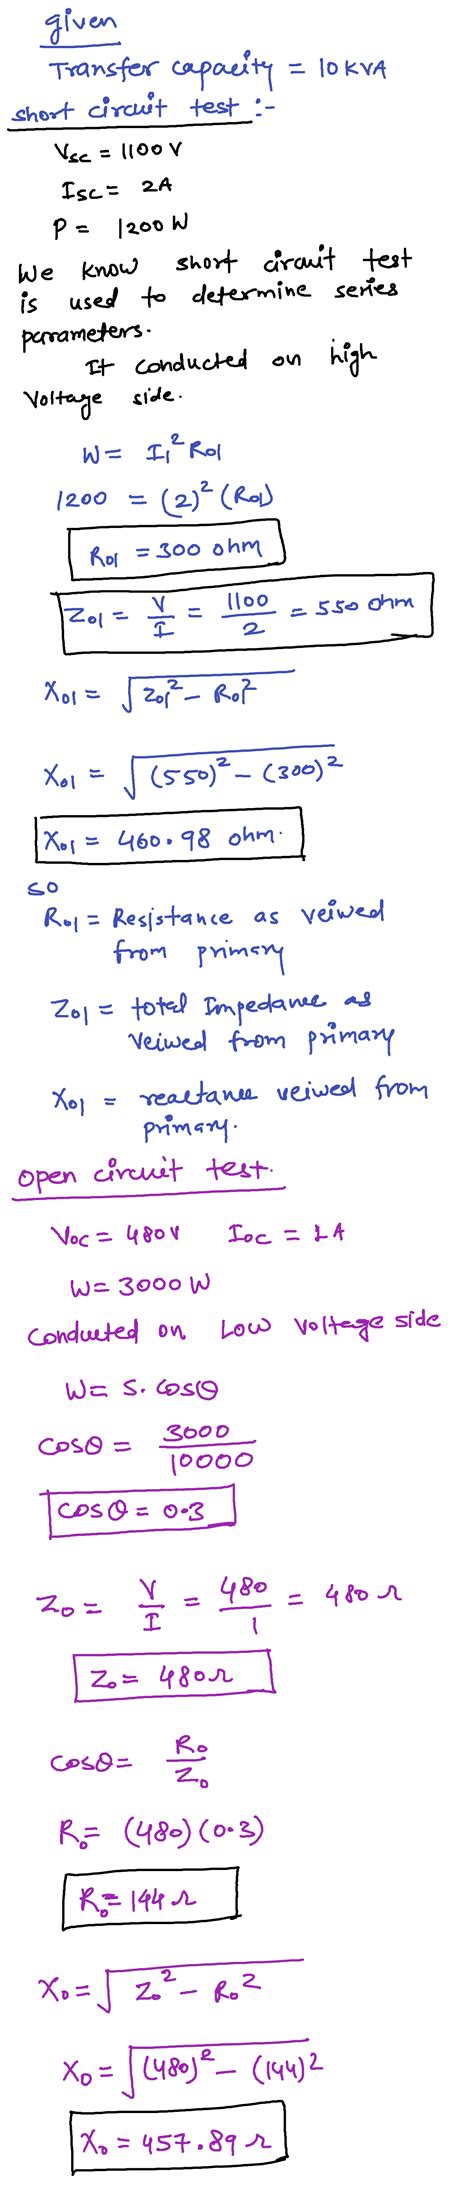 given
Transfer capacity = 10 KVA
short circuit test :-
Vsc = 1100 V
Isc = 2A
P = 1200 W
We know short circuit test
is used to determine series
parameters.
It conducted on high
Voltage side.
W = I₁² R01
1200 = (2)² (R01)
R01 = 300 ohm
Z01 = V/I = 1100/2 = 550 ohm
X01 = √(Z01² - R01²)
X01 = √((550)² - (300)²)
X01 = 460.98 ohm.
so
R01 = Resistance as veiwed
from primary
Z01 = total Impedance as
Veiwed from primary
X01 = reactance veiwed from
primary.
open circuit test.
Voc = 480V Ioc = 1A
W = 3000 W
Conducted on Low voltage side
W = S. cosθ
cosθ = 3000/10000
cosθ = 0.3
Z0 = V/I = 480/1 = 480 Ω
Z0 = 480Ω
cosθ = R0/Z0
R0 = (480)(0.3)
R0 = 144 Ω
X0 = √(Z0² - R0²)
X0 = √((480)² - (144)²)
X0 = 457.89 Ω